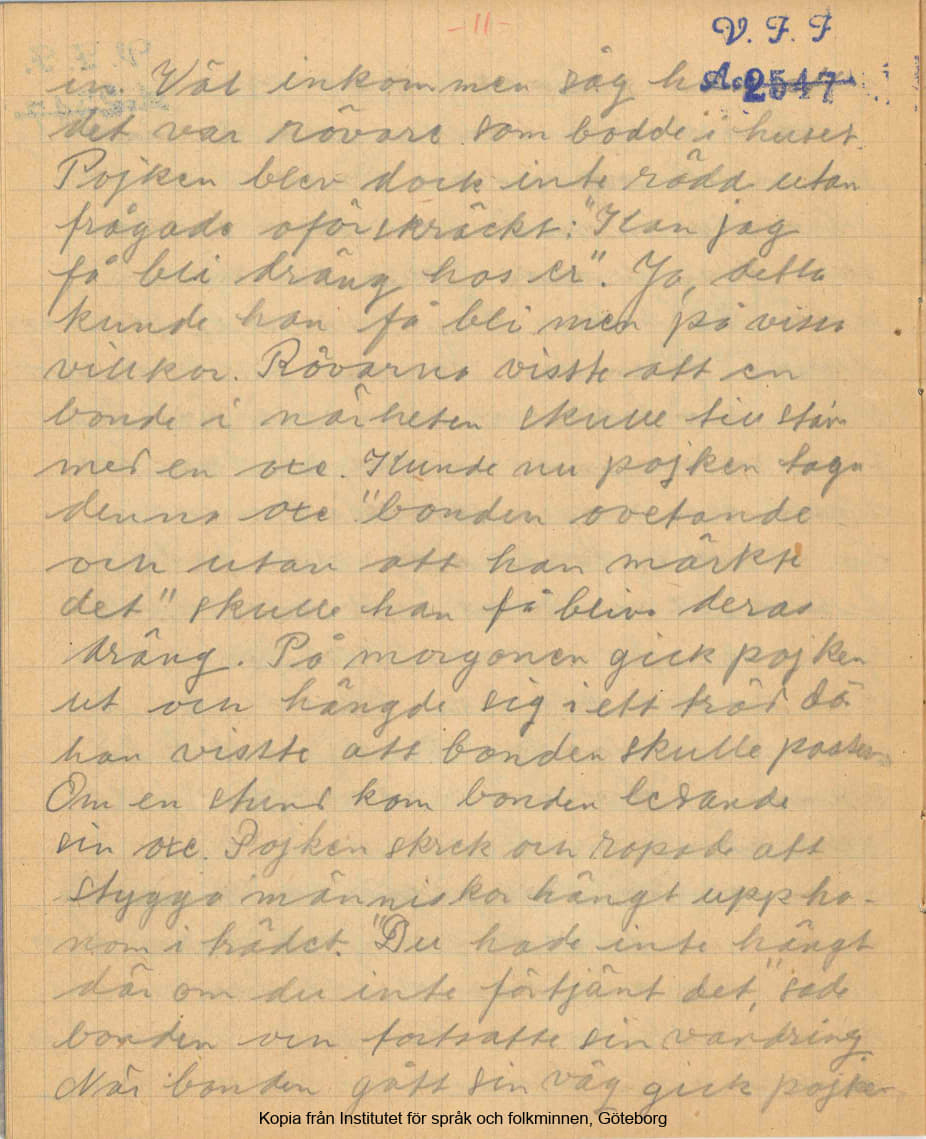 -11-
V. F. F
Acc 2547
in. Väl inkommen såg
det var rövare som bodde i huset.
Pojken blev dock inte rädd utan
frågade oförskräckt: "Kan jag
få bli dräng hos er". Ja, detta
kunde han få bli men på vissa
villkor. Rövarna visste att en
bonde i närheten skulle till stan
med en oxe. Kunde nu pojken taga
denna oxe "bonden ovetande
och utan att han märkte
det" skulle han få bliva deras
dräng. På morgonen gick pojken
ut och hängde sig i ett träd då
han visste att bonden skulle passera
Om en stund kom bonden ledande
sin oxe. Pojken skrek och ropade att
stygga människor hängt upp ho-
nom i trädet. "Du hade inte hängt
där om du inte förtjänt det", sade
bonden och fortsatte sin vandring.
När bonden gått sin väg gick pojken
Kopia från Institutet för språk och folkminnen, Göteborg